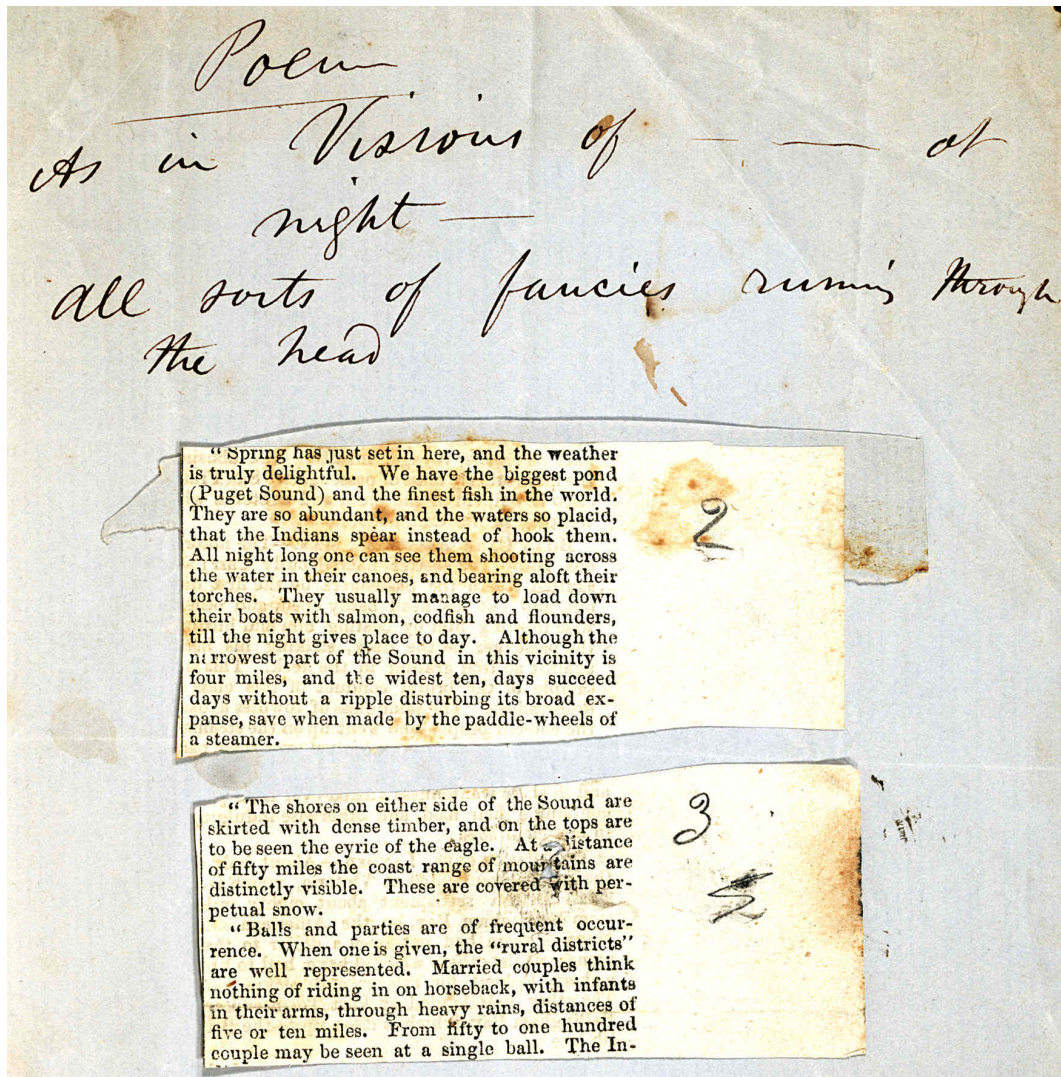 Poem
As in Visions of — — at
night —
all sorts of fancies running through
the head
"Spring has just set in here, and the weather
is truly delightful. We have the biggest pond
(Puget Sound) and the finest fish in the world.
They are so abundant, and the waters so placid,
that the Indians spear instead of hook them.
All night long one can see them shooting across
the water in their canoes, and bearing aloft their
torches. They usually manage to load down
their boats with salmon, codfish and flounders,
till the night gives place to day. Although the
narrowest part of the Sound in this vicinity is
four miles, and the widest ten, days succeed
days without a ripple disturbing its broad ex-
panse, save when made by the paddle-wheels of
a steamer.
2
"The shores on either side of the Sound are
skirted with dense timber, and on the tops are
to be seen the eyrie of the eagle. At a distance
of fifty miles the coast range of mountains are
distinctly visible. These are covered with per-
petual snow.
"Balls and parties are of frequent occur-
rence. When one is given, the "rural districts"
are well represented. Married couples think
nothing of riding in on horseback, with infants
in their arms, through heavy rains, distances of
five or ten miles. From fifty to one hundred
couple may be seen at a single ball. The In-
3